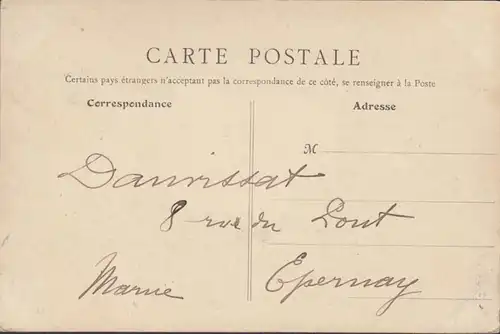 CARTE POSTALE
Certains pays étrangers n'acceptant pas la correspondance de ce côté, se renseigner à la Poste
Correspondance
Adresse
M
Dauvissat
8 rue du Pont
Marne Epernay